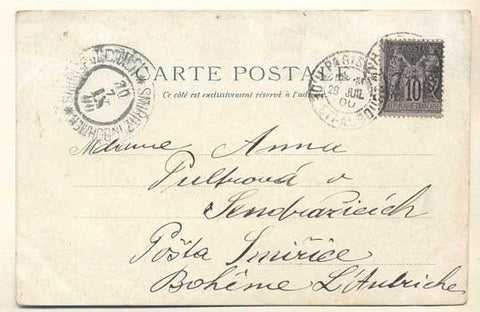 CARTE POSTALE
Ce côté est exclusivement réservé à l'adresse
PARIS
28 JUIL 00
POSTES
10
Madame Anna
Pultrová v
Sendražicích
Pošta Smiřice
Bohême L'Autriche